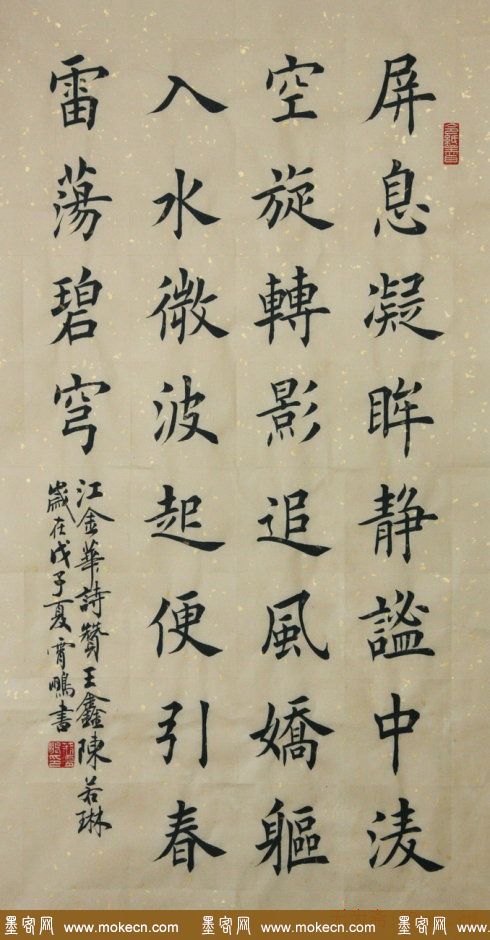 屏息凝眸静謐中淩
空旋轉影追風嬌軀
入水微波起便引春
雷蕩碧穹
江金華詩贊王鑫陳若琳
歲在戊子夏霄鵬書
墨客网 www.mokecn.com 墨客网 www.mokecn.com 墨客网 www.mokecn.com